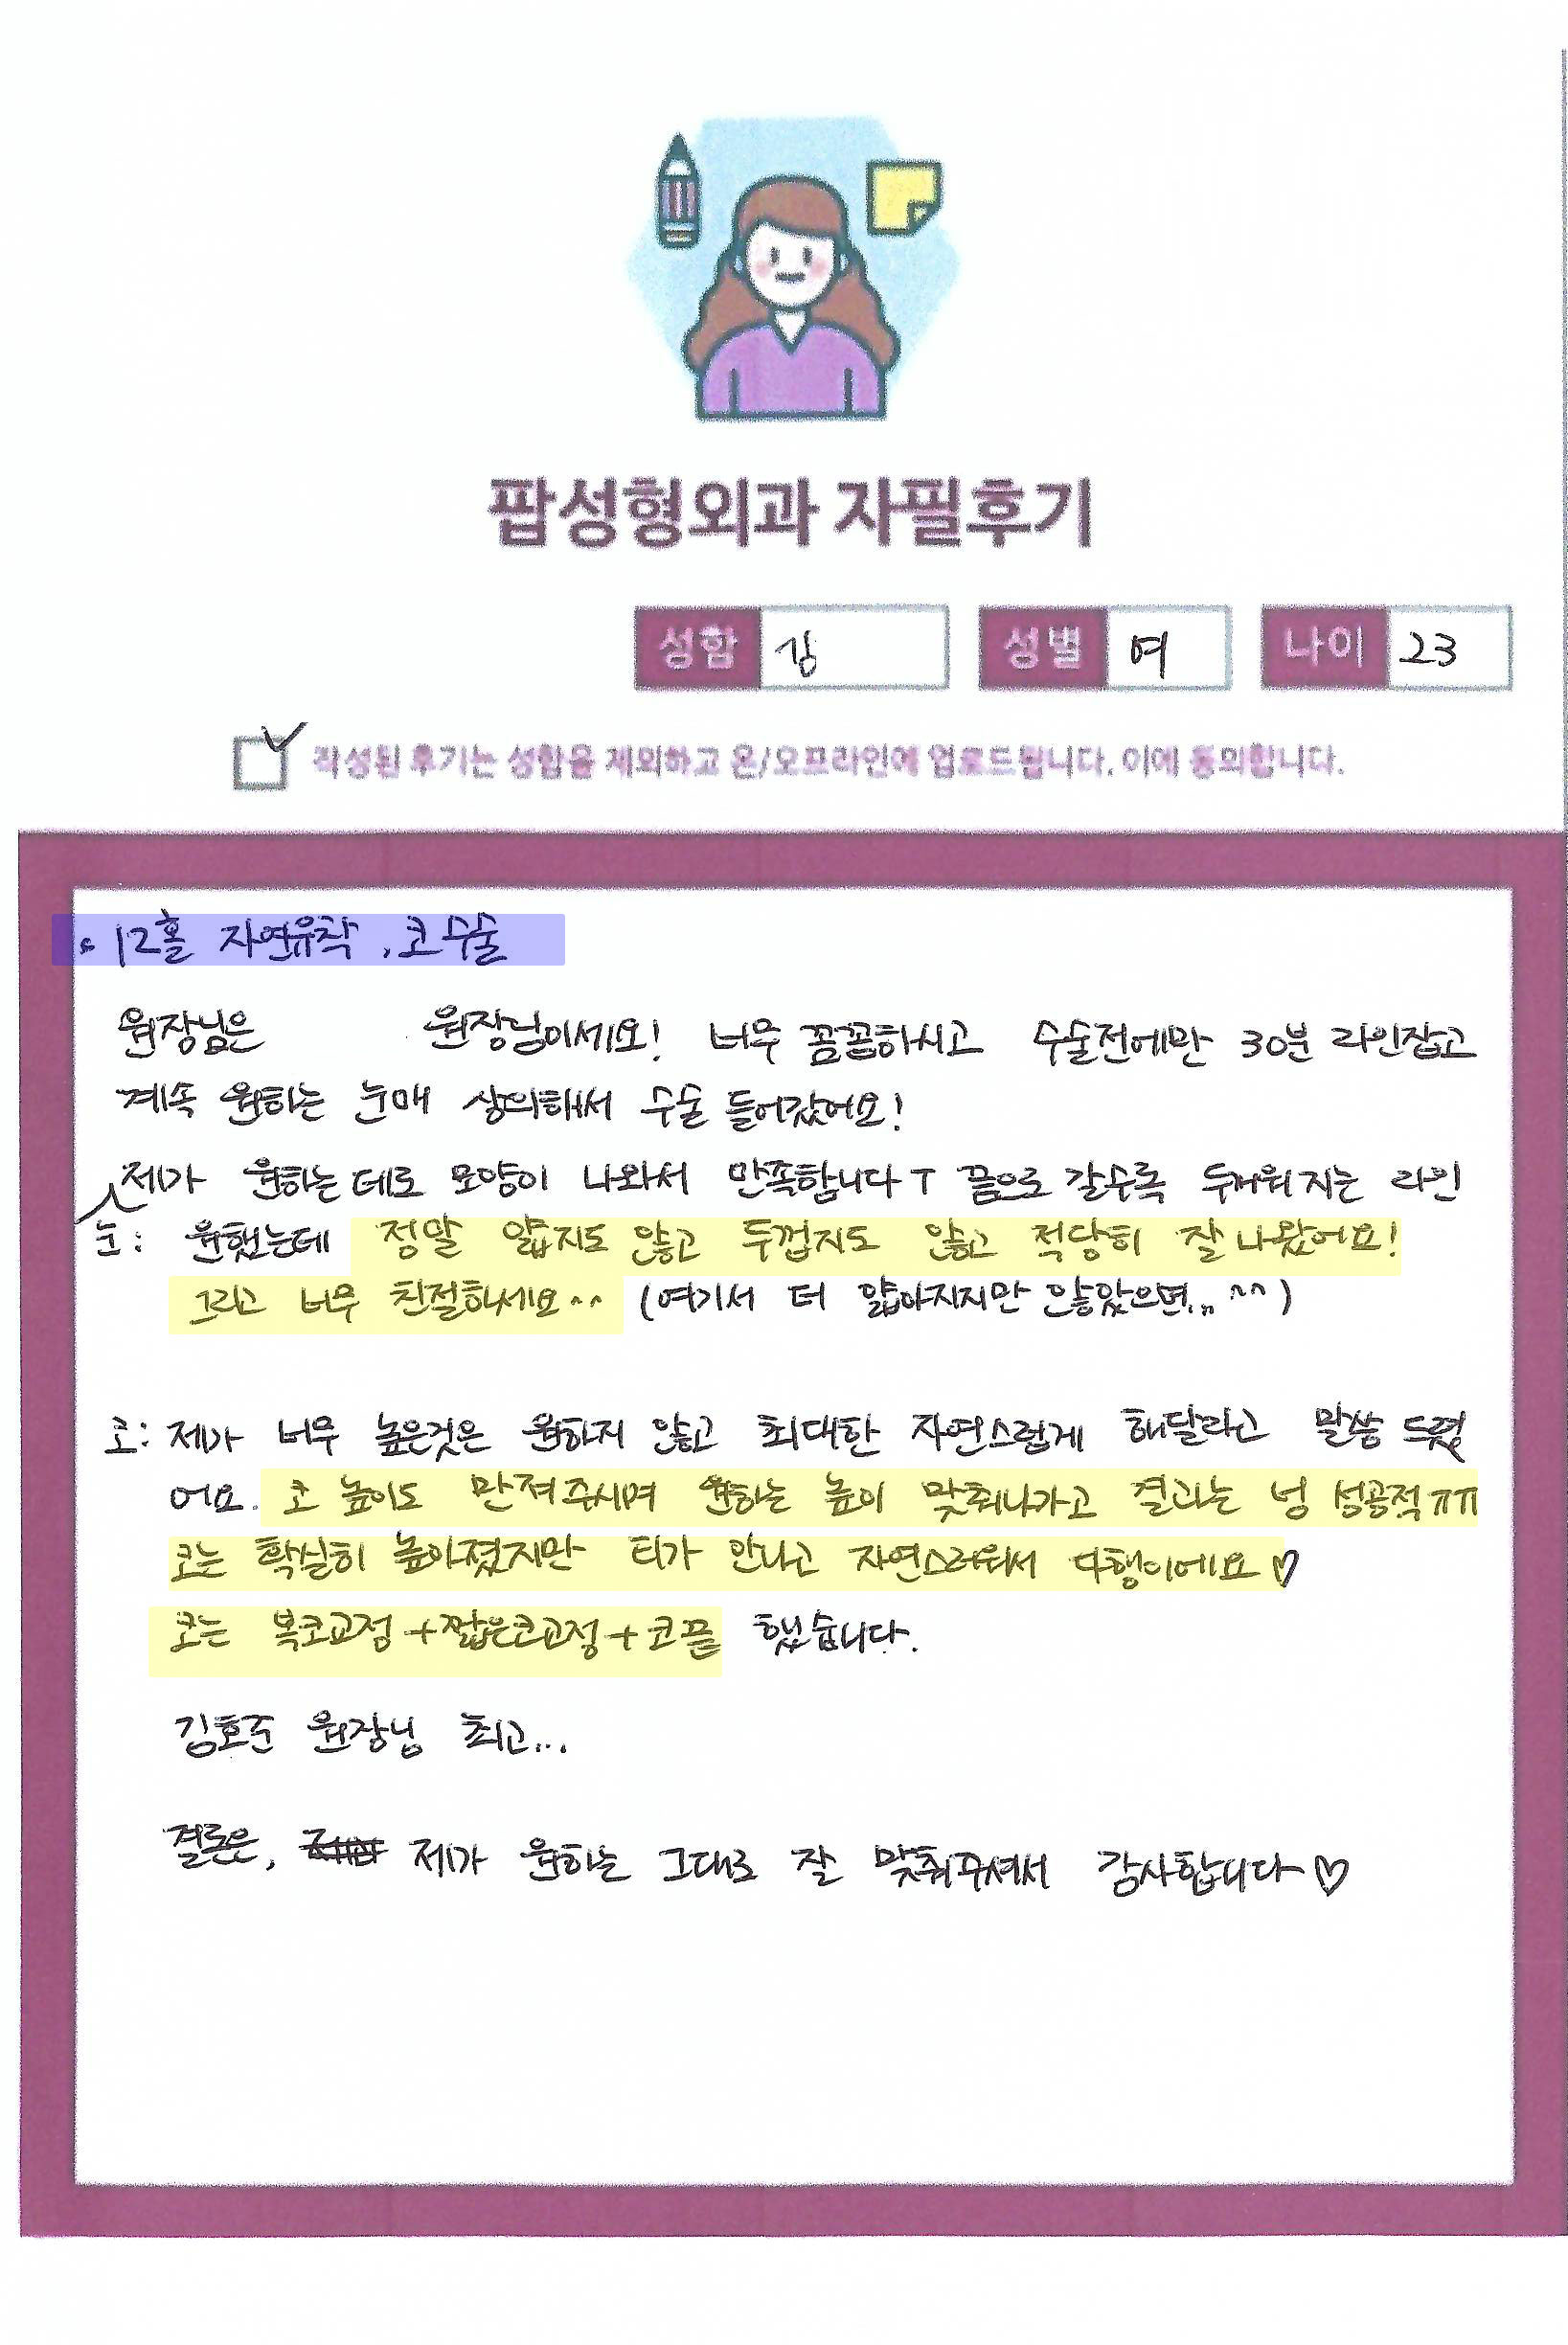 팝성형외과 자필후기
성함 김 성별 여 나이 23
작성된 후기는 성함을 제외하고 온/오프라인에 업로드됩니다. 이에 동의합니다.
12홀 자연유착, 코수술
원장님은 원장님이세요! 너무 꼼꼼하시고 수술전에만 30분 라인잡고
계속 원하는 눈매 상의해서 수술 들어갔어요!
제가 원하는데로 모양이 나와서 만족합니다ㅜ 끝으로 갈수록 두꺼워지는 라인
눈: 원했는데 정말 얇지도 않고 두껍지도 않고 적당히 잘 나왔어요!
그리고 너무 친절하세요^^ (여기서 더 얇아지지만 않았으면... ^^)
코: 제가 너무 높은것은 원하지 않고 최대한 자연스럽게 해달라고 말씀 드렸
어요. 코 높이도 만져주시며 원하는 높이 맞춰나가고 결과는 넝 성공적ㅠㅠ
코는 확실히 높아졌지만 티가 안나고 자연스러워서 다행이에요♡
코는 복코교정+짧은코교정+코끝 했습니다.
김호준 원장님 최고...
결론은, 제가 원하는 그대로 잘 맞춰주셔서 감사합니다♡